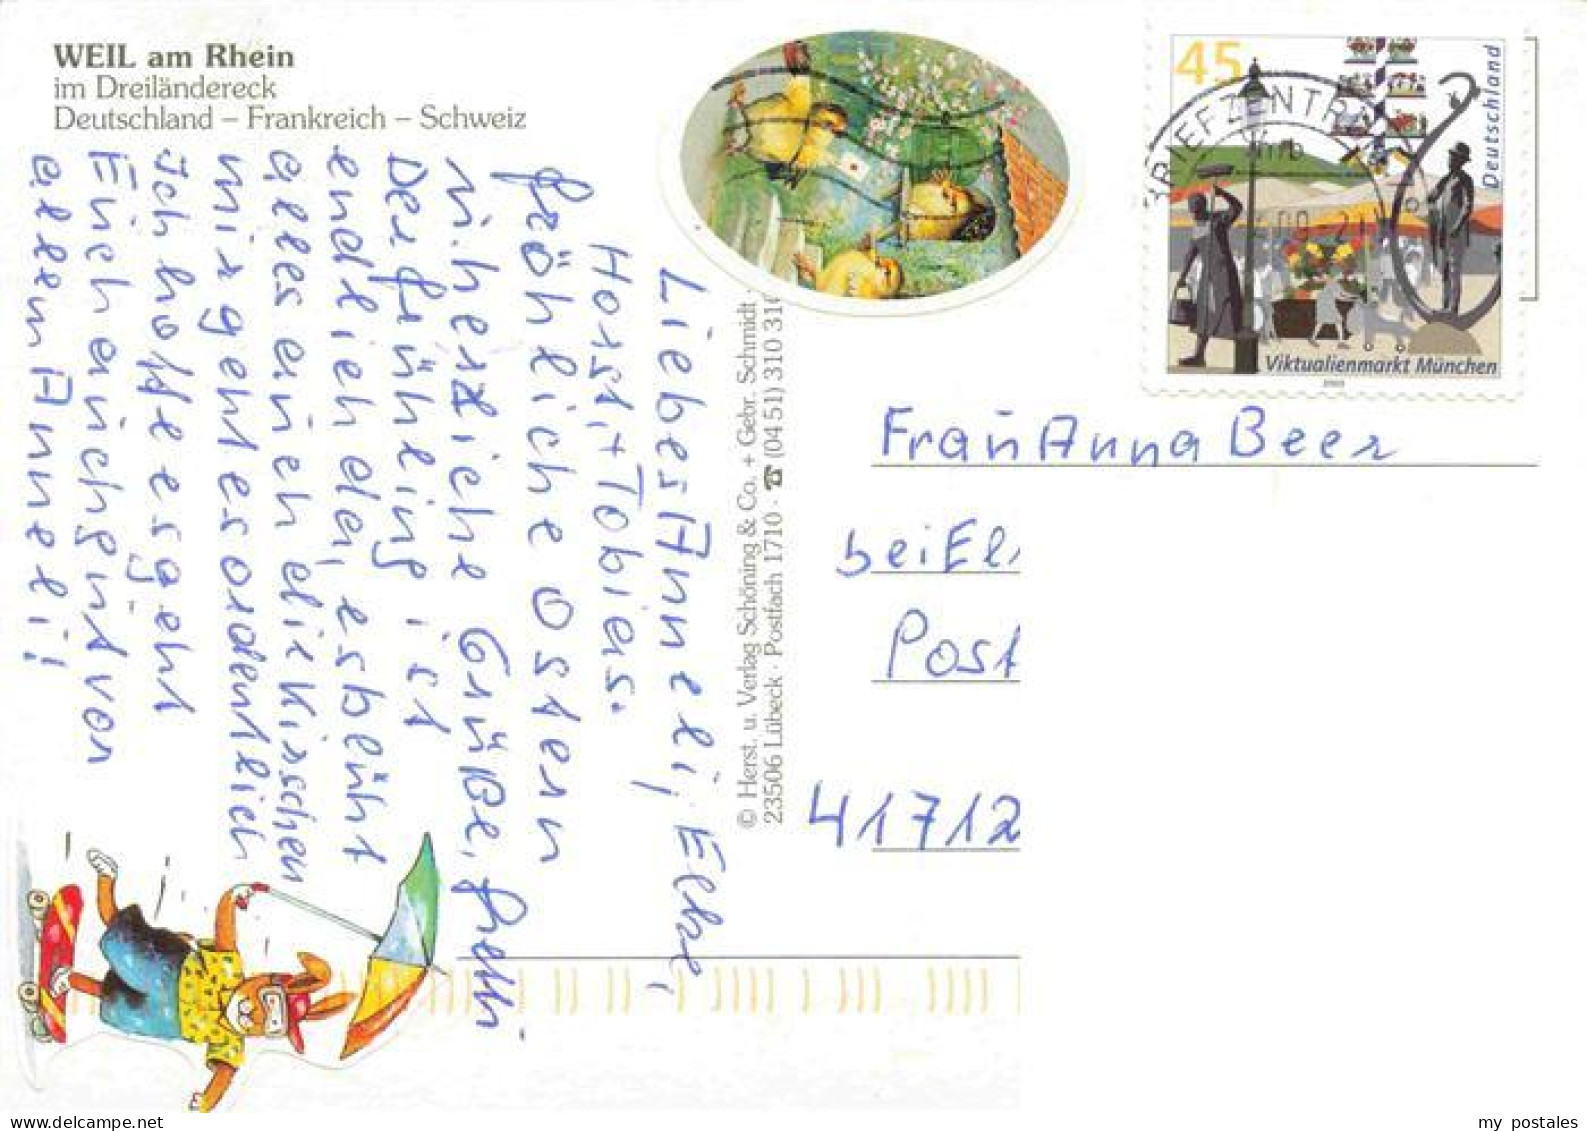 WEIL am Rhein
im Dreiländereck
Deutschland – Frankreich – Schweiz
Liebes Anneli, Elke,
Horst + Tobias.
fröhliche Ostern
u. herzliche Grüße,
Der Frühling ist
endlich da, es blüht
alles auch die Kirschen
mir geht es ordentlich
Ich hoffe es geht
Euch auch gut von
allem Anneli!
© Herst. u. Verlag Schöning & Co. + Gebr. Schmidt ·
23506 Lübeck · Postfach 1710 · ☎ (04 51) 310 310
45
Deutschland
Viktualienmarkt München
2003
BRIEFZENTRUM
Frau Anna Beer
bei
Post
41712
my postales